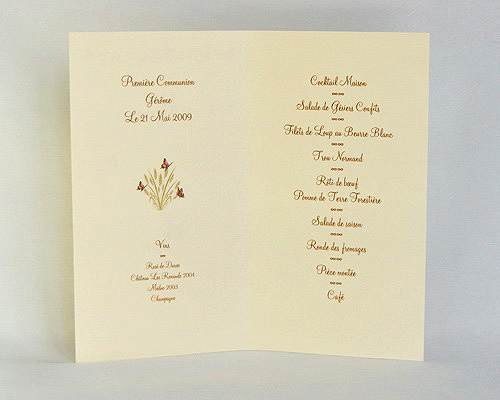 Première Communion
Gérôme
Le 21 Mai 2009
Vins
Rosé de Diane
Château Les Renards 2004
Médoc 2003
Champagne
Cocktail Maison
Salade de Gésiers Confits
Filets de Loup au Beurre Blanc
Trou Normand
Rôti de bœuf
Pomme de Terre Forestière
Salade de saison
Ronde des fromages
Pièce montée
Café